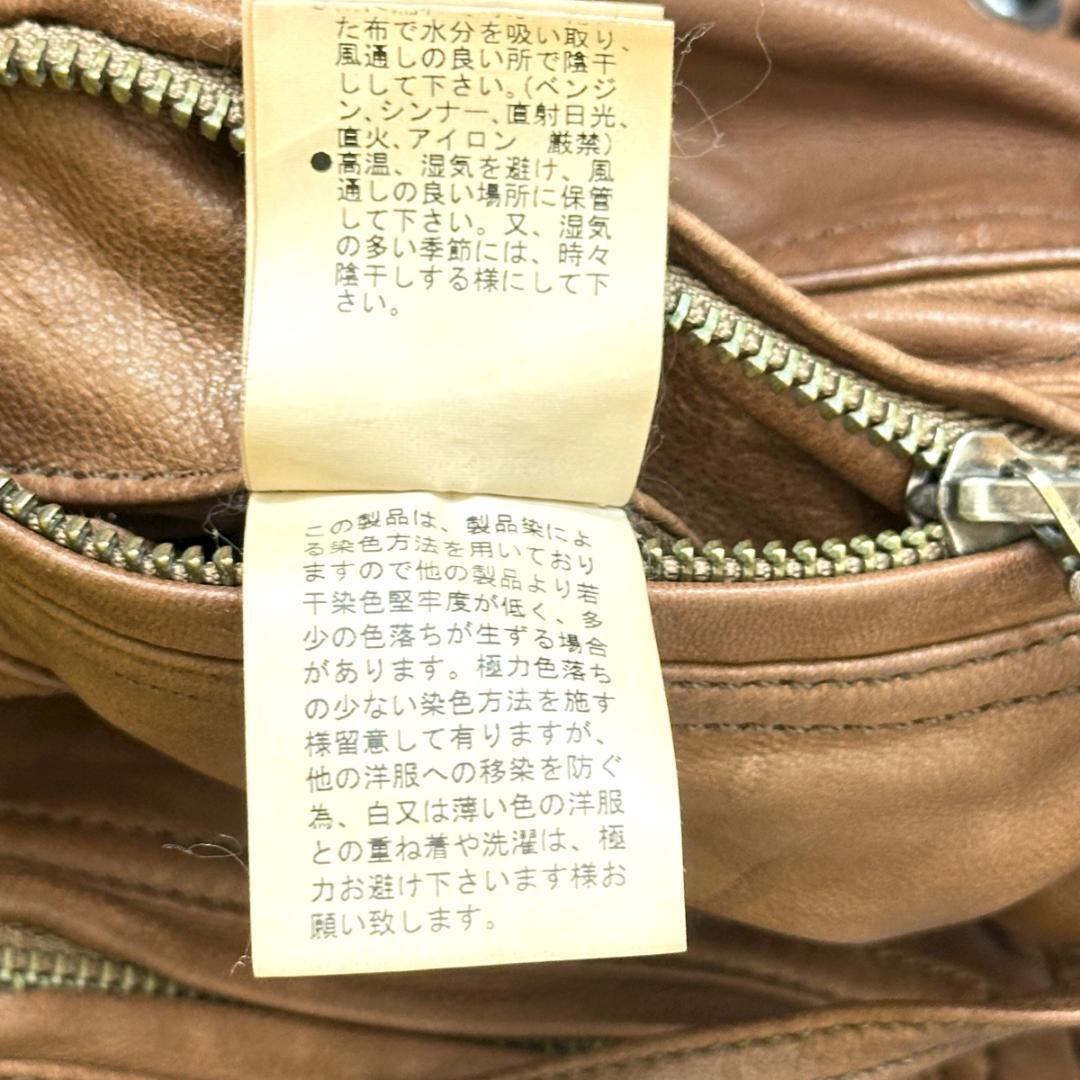 た布で水分を吸い取り、
風通しの良い所で陰干
しして下さい。(ベンジ
ン、シンナー、直射日光、
直火、アイロン　厳禁)
●高温、湿気を避け、風
通しの良い場所に保管
して下さい。又、湿気
の多い季節には、時々
陰干しする様にして下
さい。
この製品は、製品染によ
る染色方法を用いており
ますので他の製品より若
干染色堅牢度が低く、多
少の色落ちが生ずる場合
があります。極力色落ち
の少ない染色方法を施す
様留意して有りますが、
他の洋服への移染を防ぐ
為、白又は薄い色の洋服
との重ね着や洗濯は、極
力お避け下さいます様お
願い致します。